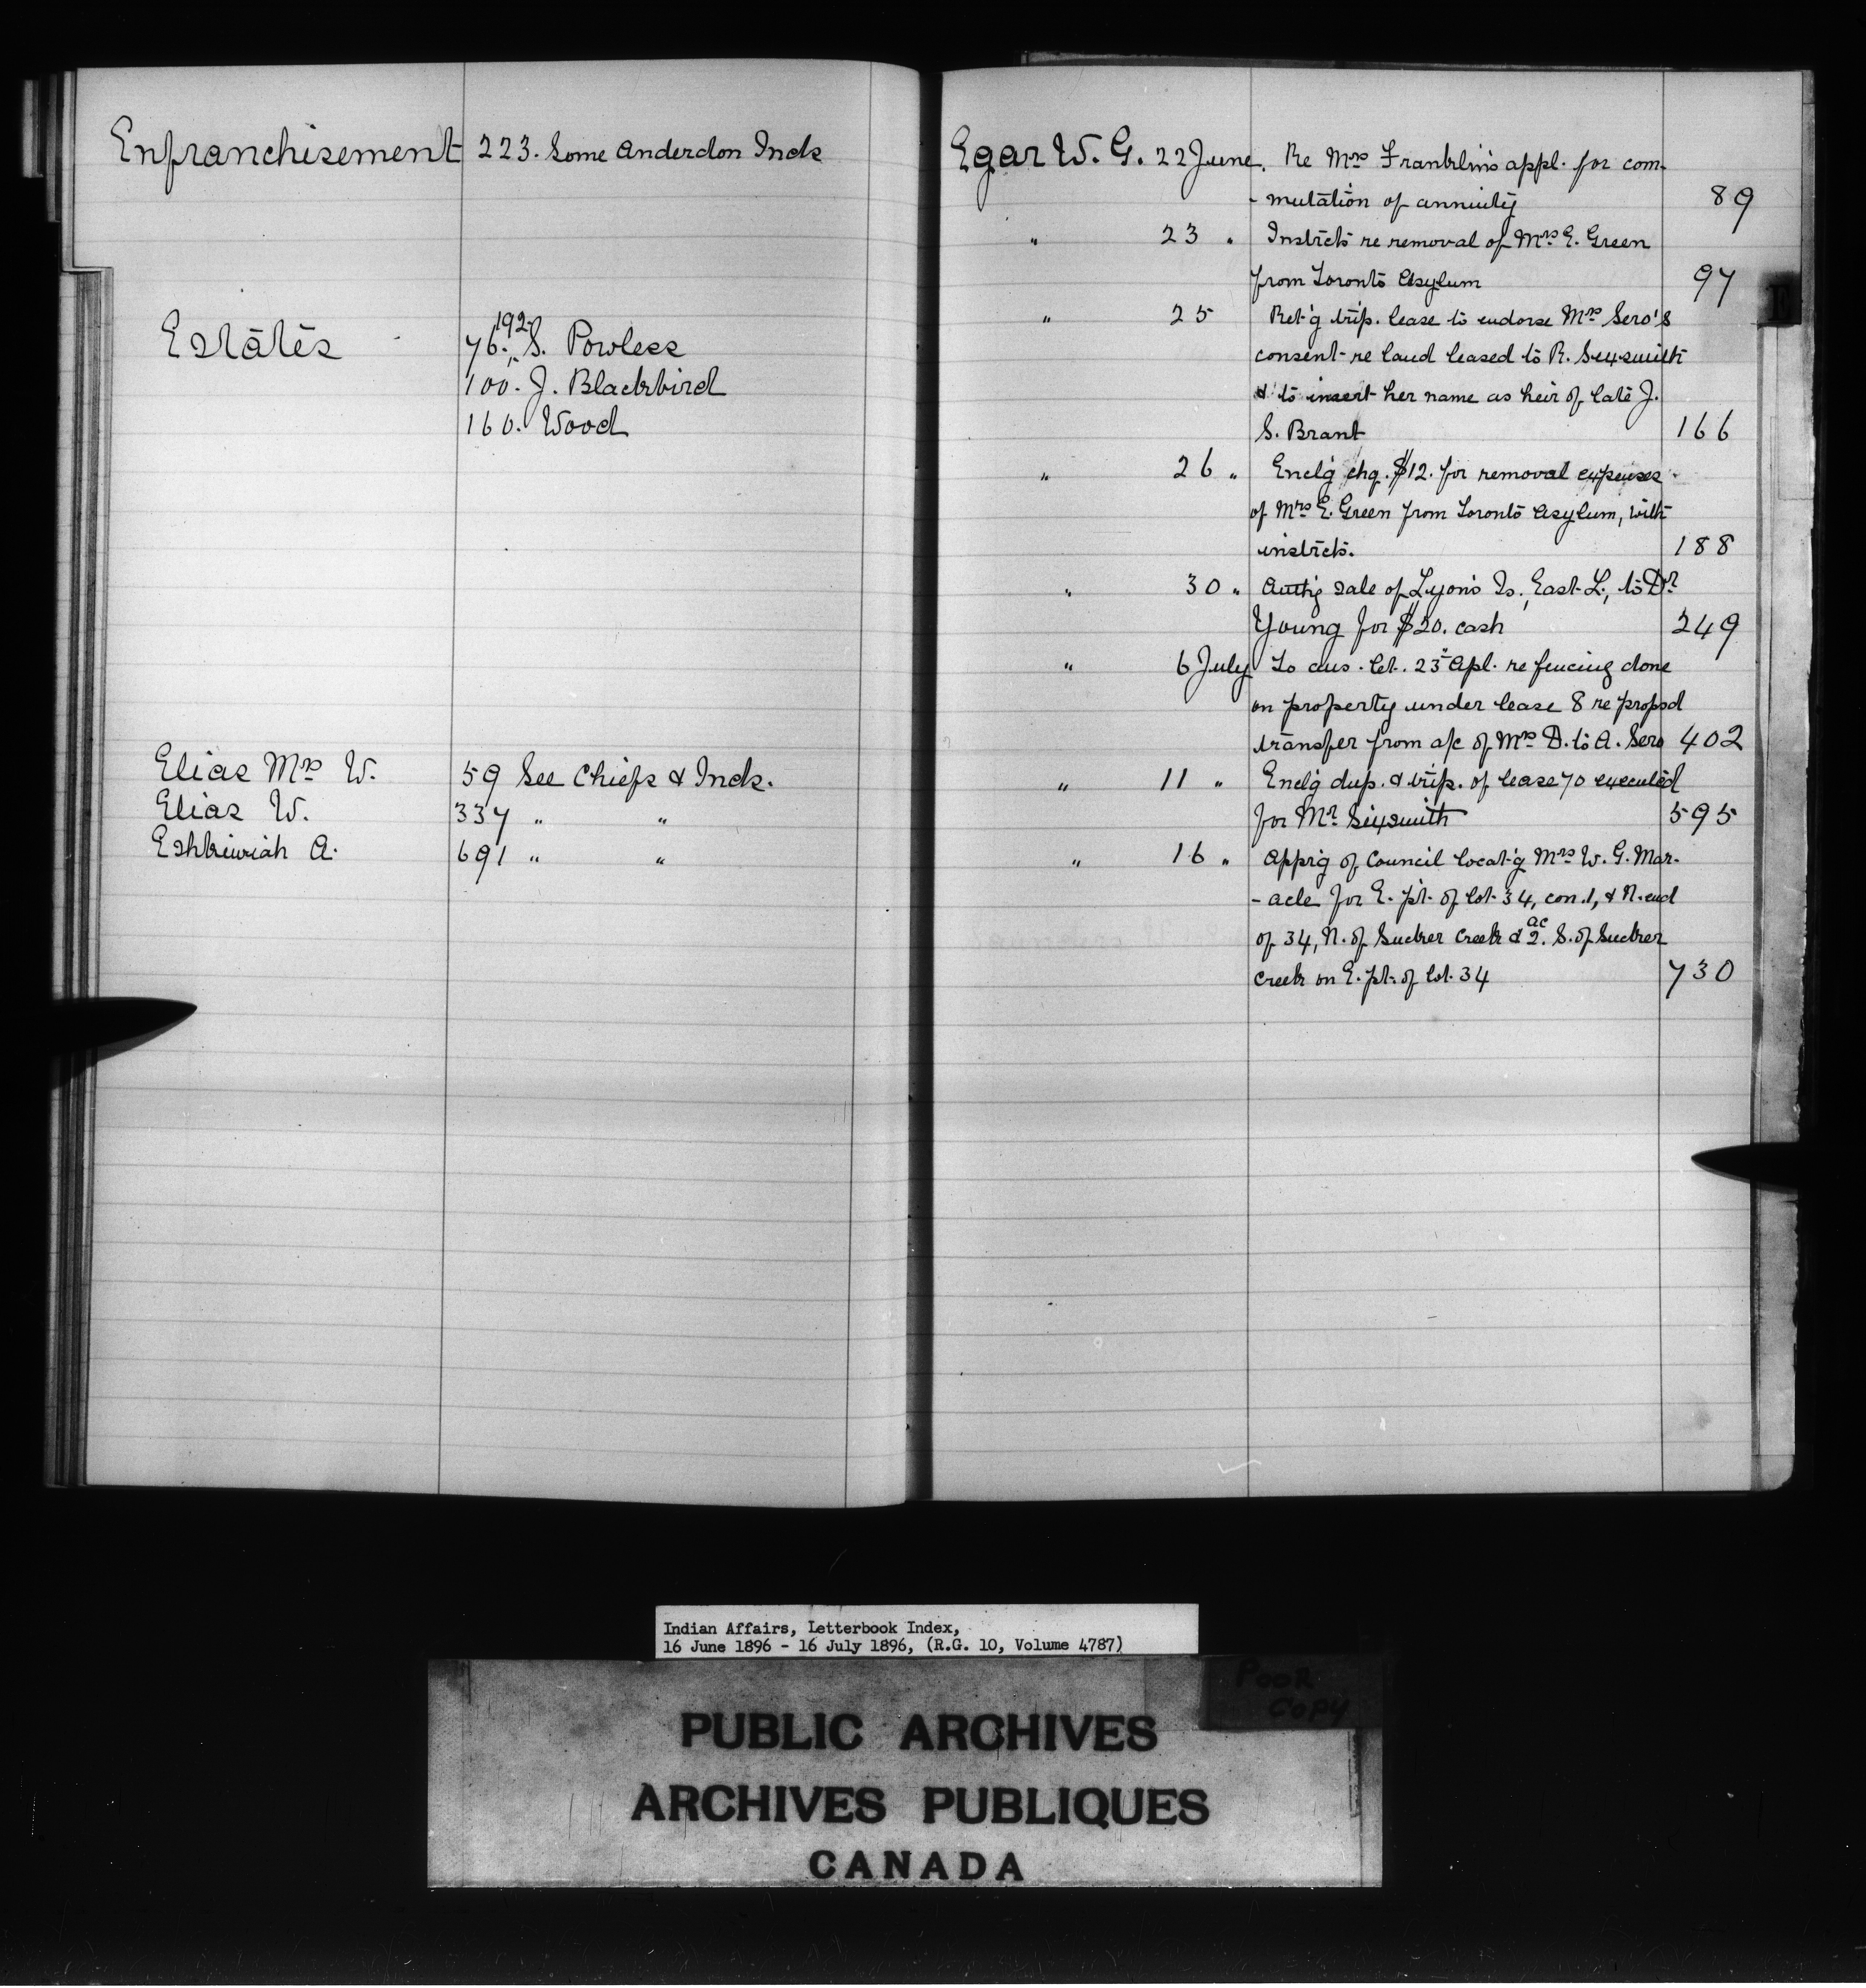 Enfranchisement 223. Some Anderdon Inds
Estates 76., 192. S. Powless
100. J. Blackbird
160. Wood
Elias Mrs W. 59 See Chiefs & Inds.
Elias W. 337 " "
Eshkiwiah A. 691 " "
Egar W. G. 22 June. Re Mrs Franklin's appl. for com-
- mutation of annuity 89
" 23 " Instrcts re removal of Mrs E. Green
from Toronto Asylum 97
" 25 Ret'g trip. lease to endorse Mrs Sero's
consent re land leased to R. Sixsmith
& to insert her name as heir of late J.
S. Brant 166
" 26 " Encl'g chq. $12. for removal expenses
of Mrs E. Green from Toronto Asylum, with
instrcts. 188
" 30 " Auth'g sale of Lyons Is., East L., to Dr
Young for $20. cash 249
" 6 July To ans. let. 23 Apl. re fencing done
on property under lease 8 re propsd
transfer from a/c of Mrs D. to A. Sero 402
" 11 " Encl'g dup. & trip. of lease 70 executed
for Mr Sixsmith 595
" 16 " Appr'g of Council locat'g Mrs W. G. Mar-
- acle for E. pt. of lot 34, con. 1, & N. end
of 34, N. of Sucker Creek & 2 ac. S. of Sucker
Creek on E. pt. of lot 34 730
E
Indian Affairs, Letterbook Index,
16 June 1896 - 16 July 1896, (R.G. 10, Volume 4787)
POOR
COPY
PUBLIC ARCHIVES
ARCHIVES PUBLIQUES
CANADA